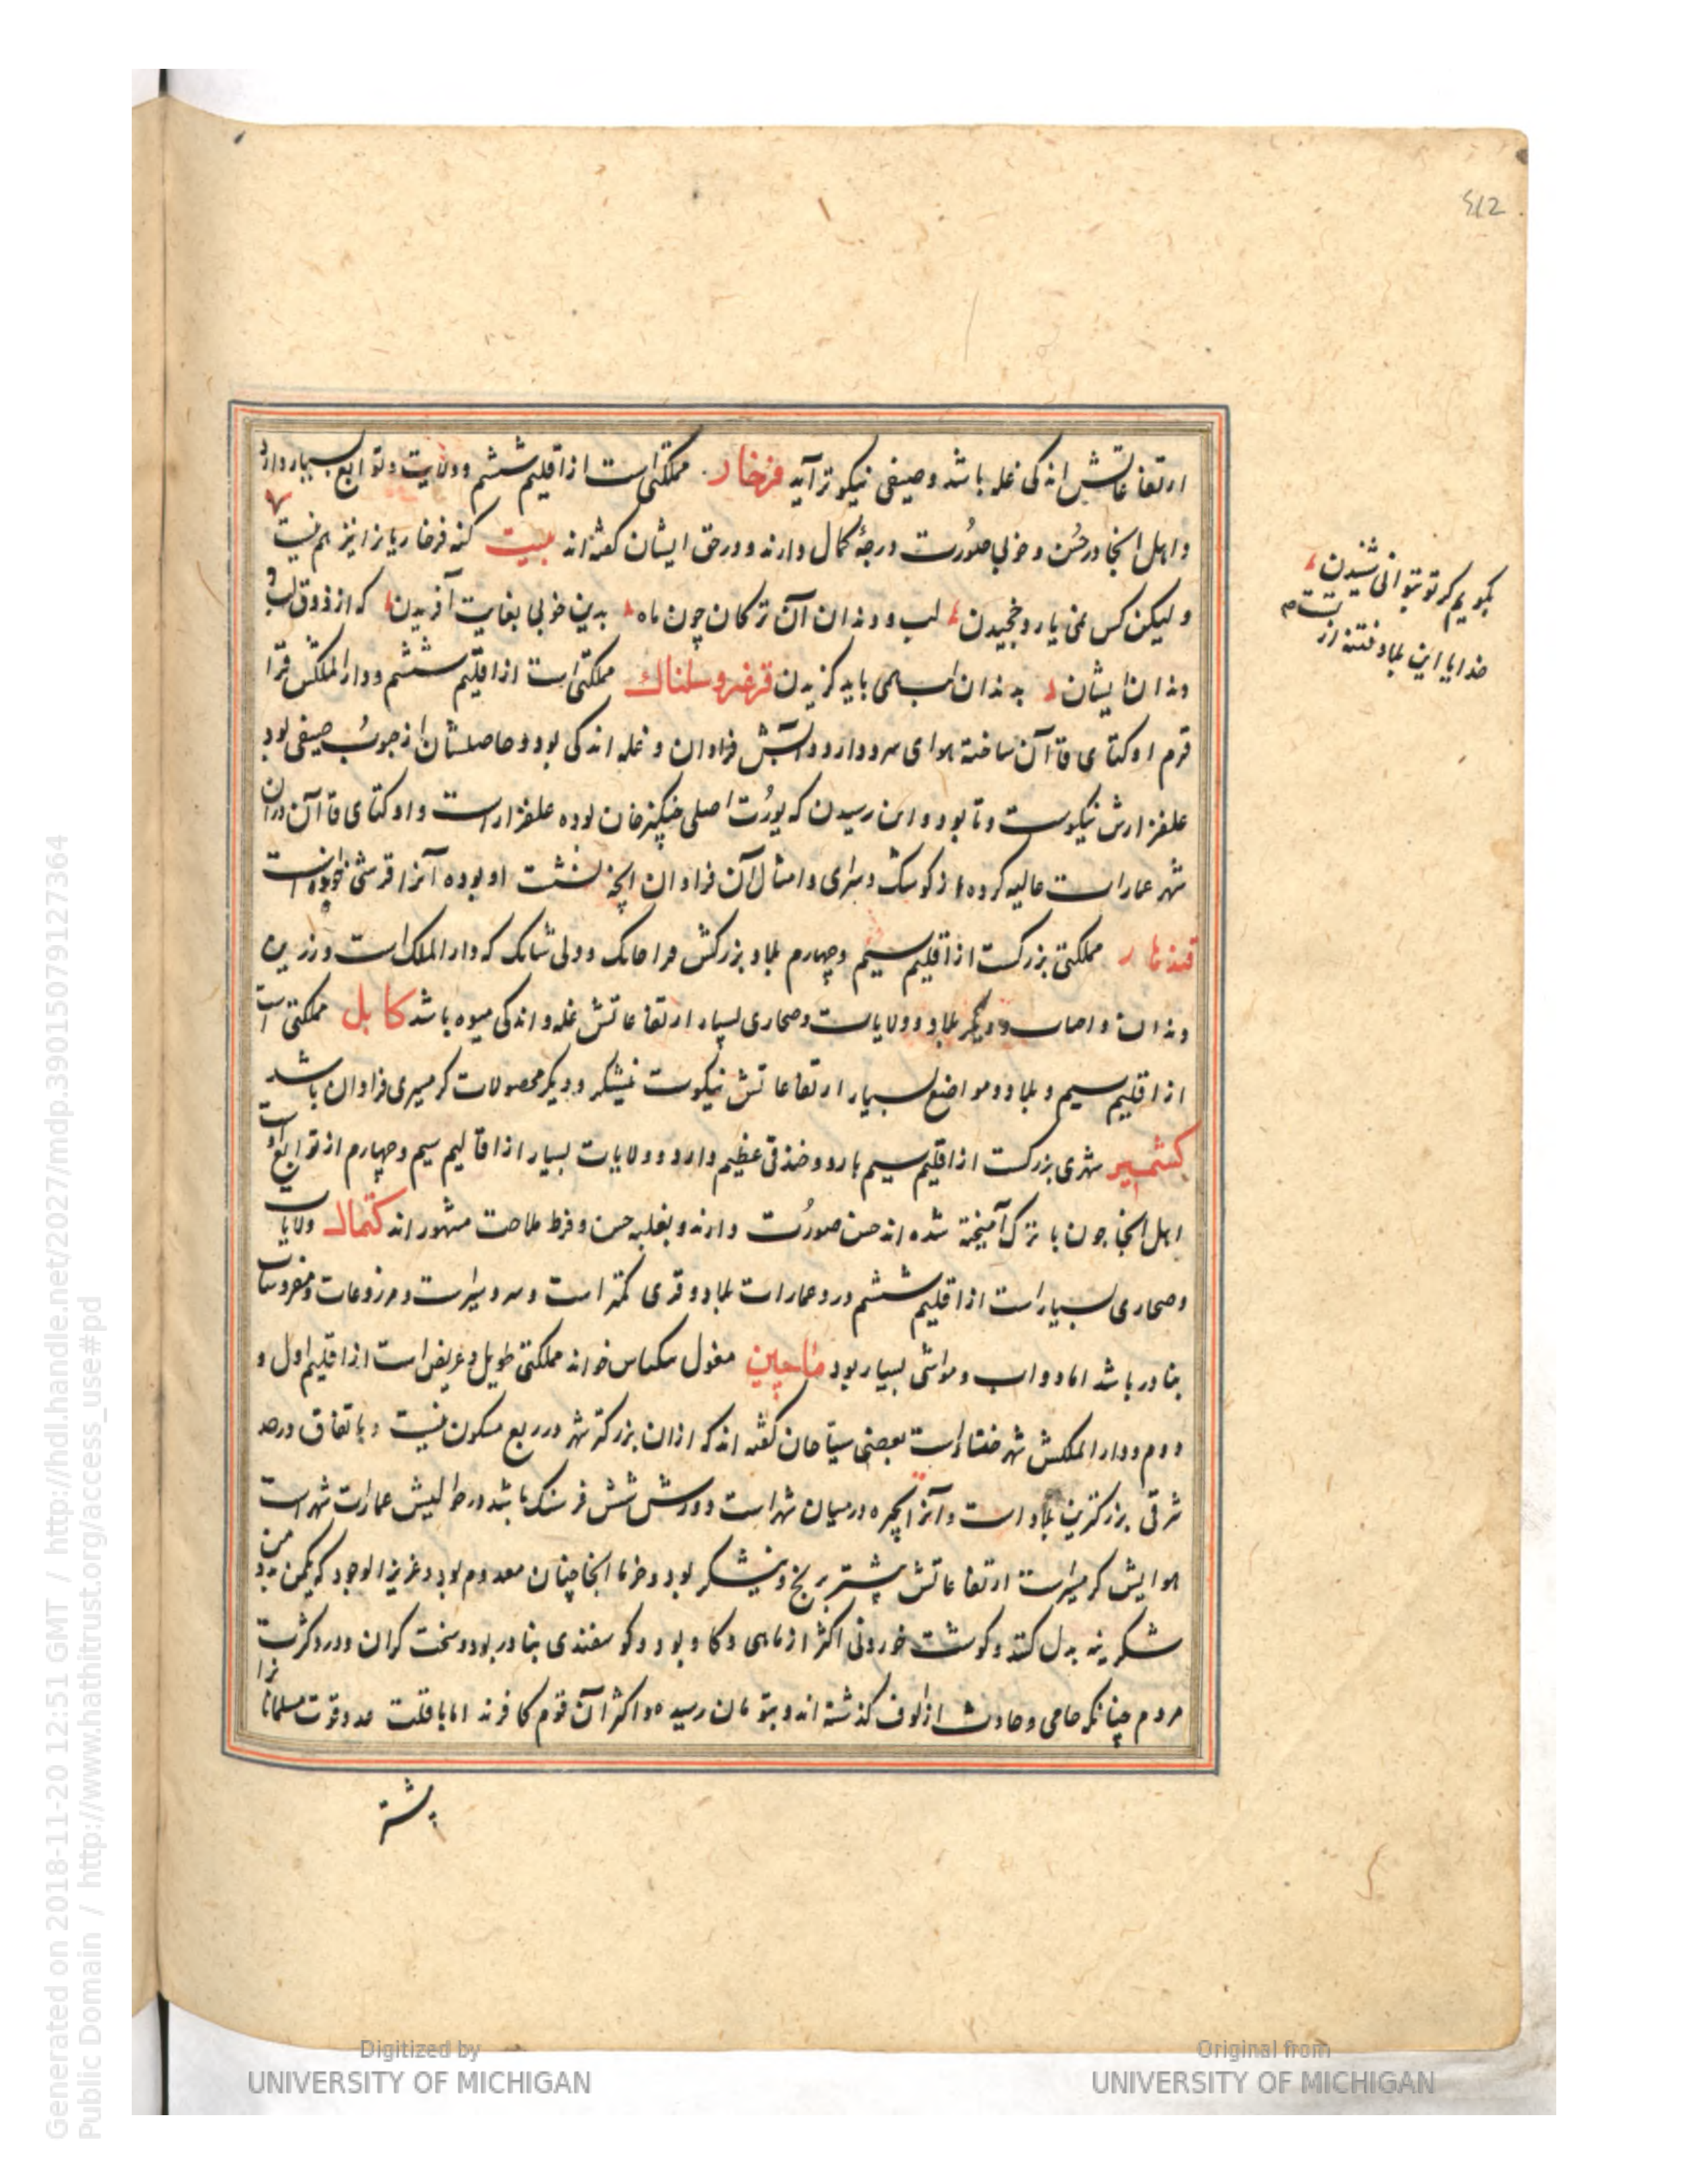 512
ارتفاعاتش اندکی غله باشد و صیفی نیکوتر آید فرخار مملکتی است از اقلیم ششم و ولایت و توابع بسیار دارد
و اهل انجا در حسن و خوبی صورت درجهٔ کمال دارند و در حق ایشان گفته‌اند بیت گنه فرخاریانرا نیز هم نیست
و لیکن کس نمی یارد چخیدن لب و دندان آن ترکان چون ماه بدین خوبی بغایت آفریدن که از ذوق لب و
دندان ایشان بدندان لب همی باید گزیدن قرغز و سلنگاک مملکتی است از اقلیم ششم و دار الملکش قرا
قرم اوکتای قاآن ساخته هوای سرد دارد و آبش فراوان و غله اندکی بود و حاصلشان از حبوب صیفی بود
علفزارش نیکوست و تابود و این رسیدن که یورت اصلی چنگیزخان بوده علفزار است و اوکتای قاآن دران
شهر عمارات عالیه کرده از کوشک و سرای و امثال آن فراوان انچه نشست او بوده آنرا قرشی خوانده است
قندهار مملکتی بزرگست از اقلیم سیم و چهارم بلاد بزرکش که دار الملک است و زرین
و دیگر بلاد و ولایات و صحاری بسیار ارتفاعاتش غله و اندکی میوه باشد کابل مملکتی است
از اقلیم سیم و بلاد و مواضع بسیار ارتفاعاتش نیکوست نیشکر و دیگر محصولات کرمسیری فراوان باشد
کشمیر شهری بزرگست از اقلیم سیم بارو و خندقی عظیم دارد و ولایات بسیار از اقالیم سیم و چهارم از توابع اوست
اهل انجا چون با ترک آمیخته شده اند حسن صورت دارند و بغلبه حسن و فرط ملاحت مشهور اند کتمال ولایات
و صحاری بسیار است از اقلیم ششم درو عمارات بلاد و قری کمتر است و سردسیر است و مزروعات و مغروسات
بنادر باشد اما دواب و مواشی بسیار بود ماچین مغول خوانند مملکتی طویل و عریض است از اقلیم اول و
دوم و دار الملکش شهر خنسا است بعضی سیاحان گفته‌اند که ازان بزرکتر شهر در ربع مسکون نیست و باتفاق در حد
شرقی بزرکترین بلاد است و آنرا بحیره در میان شهر است و دورش شش فرسنگ باشد و در حوالیش عمارات شهر است
هوایش کرمسیر است ارتفاعاتش بیشتر برنج و نیشکر بود و خرما انجا چنان معدوم بود و عزیز الوجود که یکمن بده من
شکرینه بدل کنند و کوشت خوردنی اکثر از ماهی و کاو بود و کوسفندی بنادر بود و سخت کران و درو کثرت
مردم چنانکه حامی و حارث از الوف کذشته اند و بتومان رسیده و اکثر آن قوم کافرند اما با قلت عدد قوت مسلمانانرا
بیشتر
بکویم کر تو بتوانی شنیدن
خدایا این بلا و فتنه از تست
Digitized by
UNIVERSITY OF MICHIGAN
Original from
UNIVERSITY OF MICHIGAN
Generated on 2018-11-20 12:51 GMT / http://hdl.handle.net/2027/mdp.39015079127364
Public Domain / http://www.hathitrust.org/access_use#pd